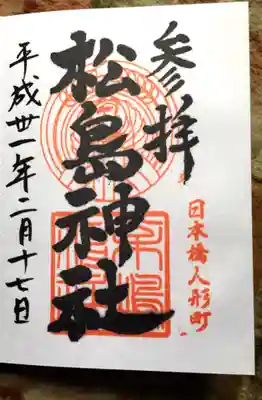 参拝
日本橋人形町
松島神社
平成丗一年二月十七日